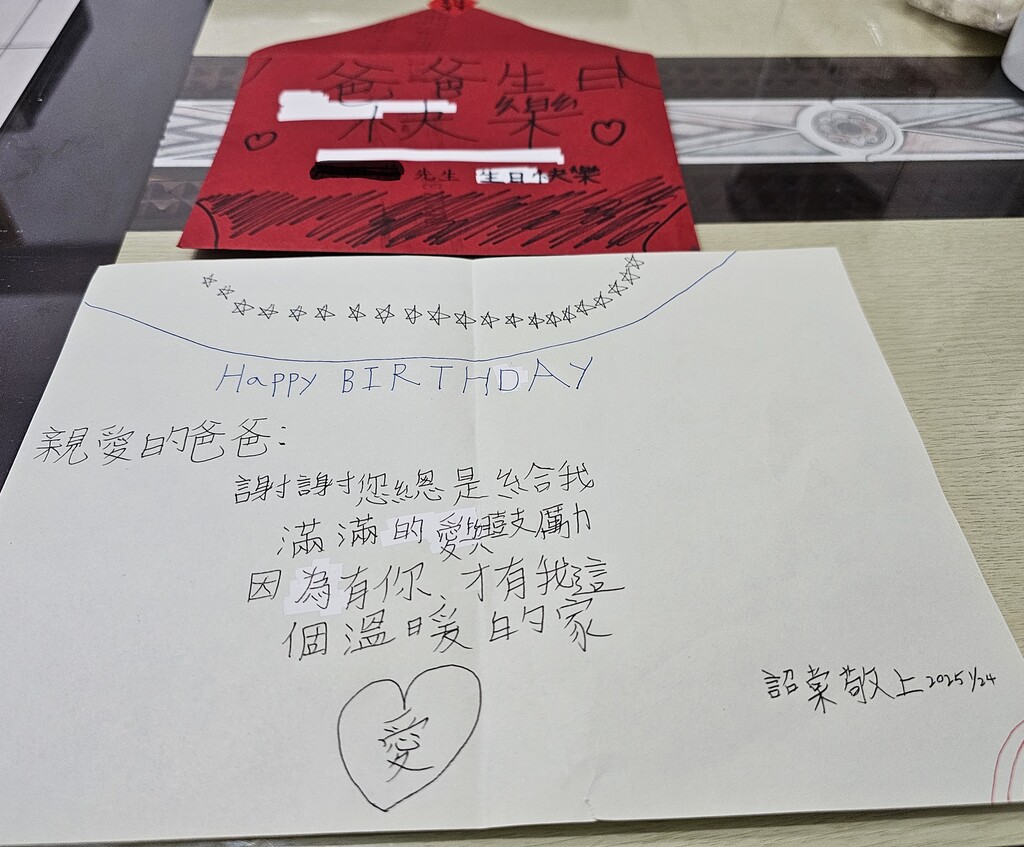 爸爸生日
快樂
先生 生日快樂
Happy BIRTHDAY
親愛的爸爸:
謝謝您總是給我
滿滿的愛與鼓勵
因為有你、才有我這
個溫暖的家
愛
詔棠敬上2025 1/24